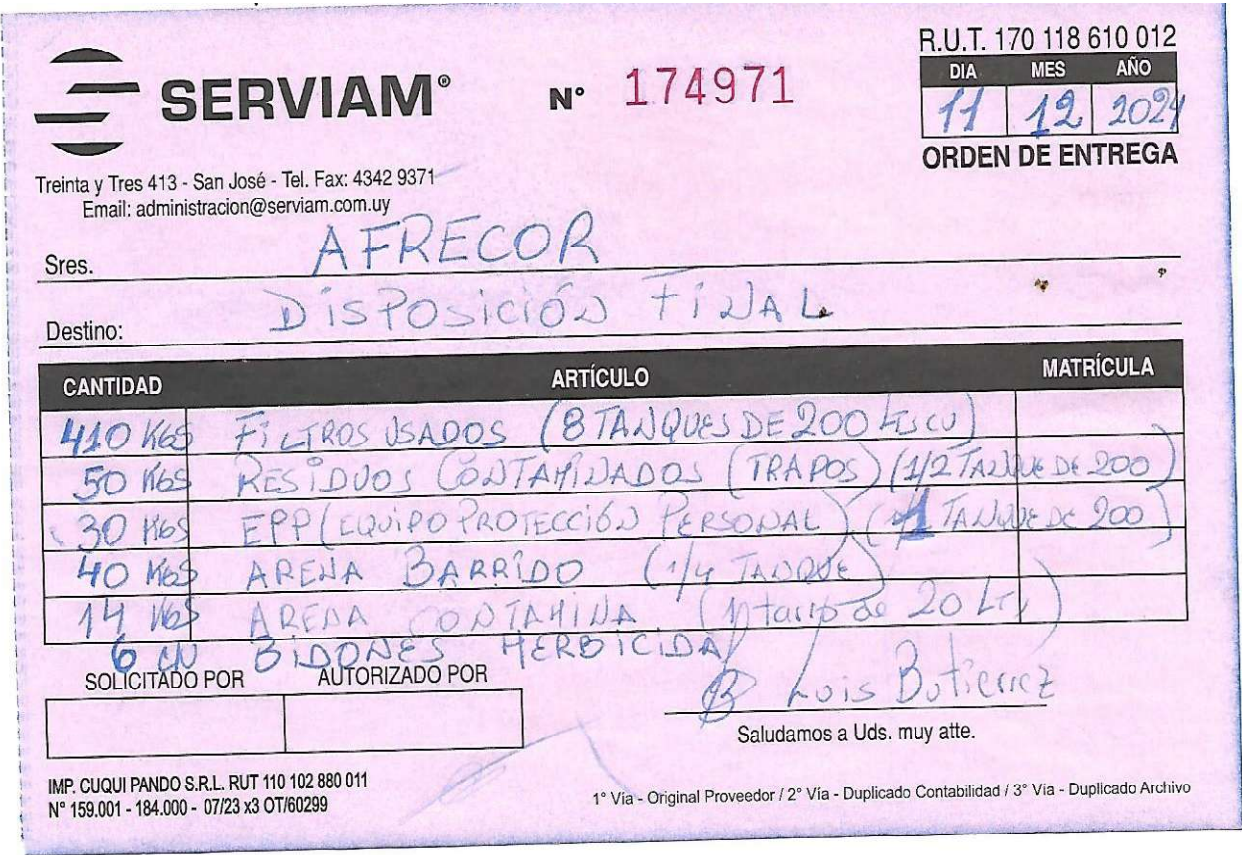 R.U.T. 170 118 610 012
SERVIAM® N° 174971
DIA MES AÑO
11 12 2024
ORDEN DE ENTREGA
Treinta y Tres 413 - San José - Tel. Fax: 4342 9371
Email: administracion@serviam.com.uy
Sres. AFRECOR
Destino: DISPOSICIÓN FINAL
CANTIDAD ARTÍCULO MATRÍCULA
410 KGS FILTROS USADOS (8 TANQUES DE 200 LTS CU)
50 KGS RESIDUOS CONTAMINADOS (TRAPOS) (1/2 TANQUE DE 200)
30 KGS EPP (EQUIPO PROTECCIÓN PERSONAL) (1 TANQUE DE 200)
40 KGS ARENA BARRIDO (1/4 TANQUE)
14 KGS ARENA CONTAMINA (1 tarro de 20 LTS)
6 CN BIDONES HERBICIDA
SOLICITADO POR AUTORIZADO POR
Luis Butierrez
Saludamos a Uds. muy atte.
IMP. CUQUI PANDO S.R.L. RUT 110 102 880 011
N° 159.001 - 184.000 - 07/23 x3 OT/60299
1° Vía - Original Proveedor / 2° Vía - Duplicado Contabilidad / 3° Vía - Duplicado Archivo